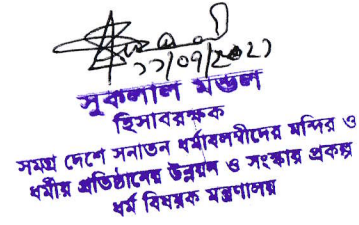 সুকলাল মন্ডল
হিসাবরক্ষক
সমগ্র দেশে সনাতন ধর্মাবলম্বীদের মন্দির ও
ধর্মীয় প্রতিষ্ঠানের উন্নয়ন ও সংস্কার প্রকল্প
ধর্ম বিষয়ক মন্ত্রণালয়